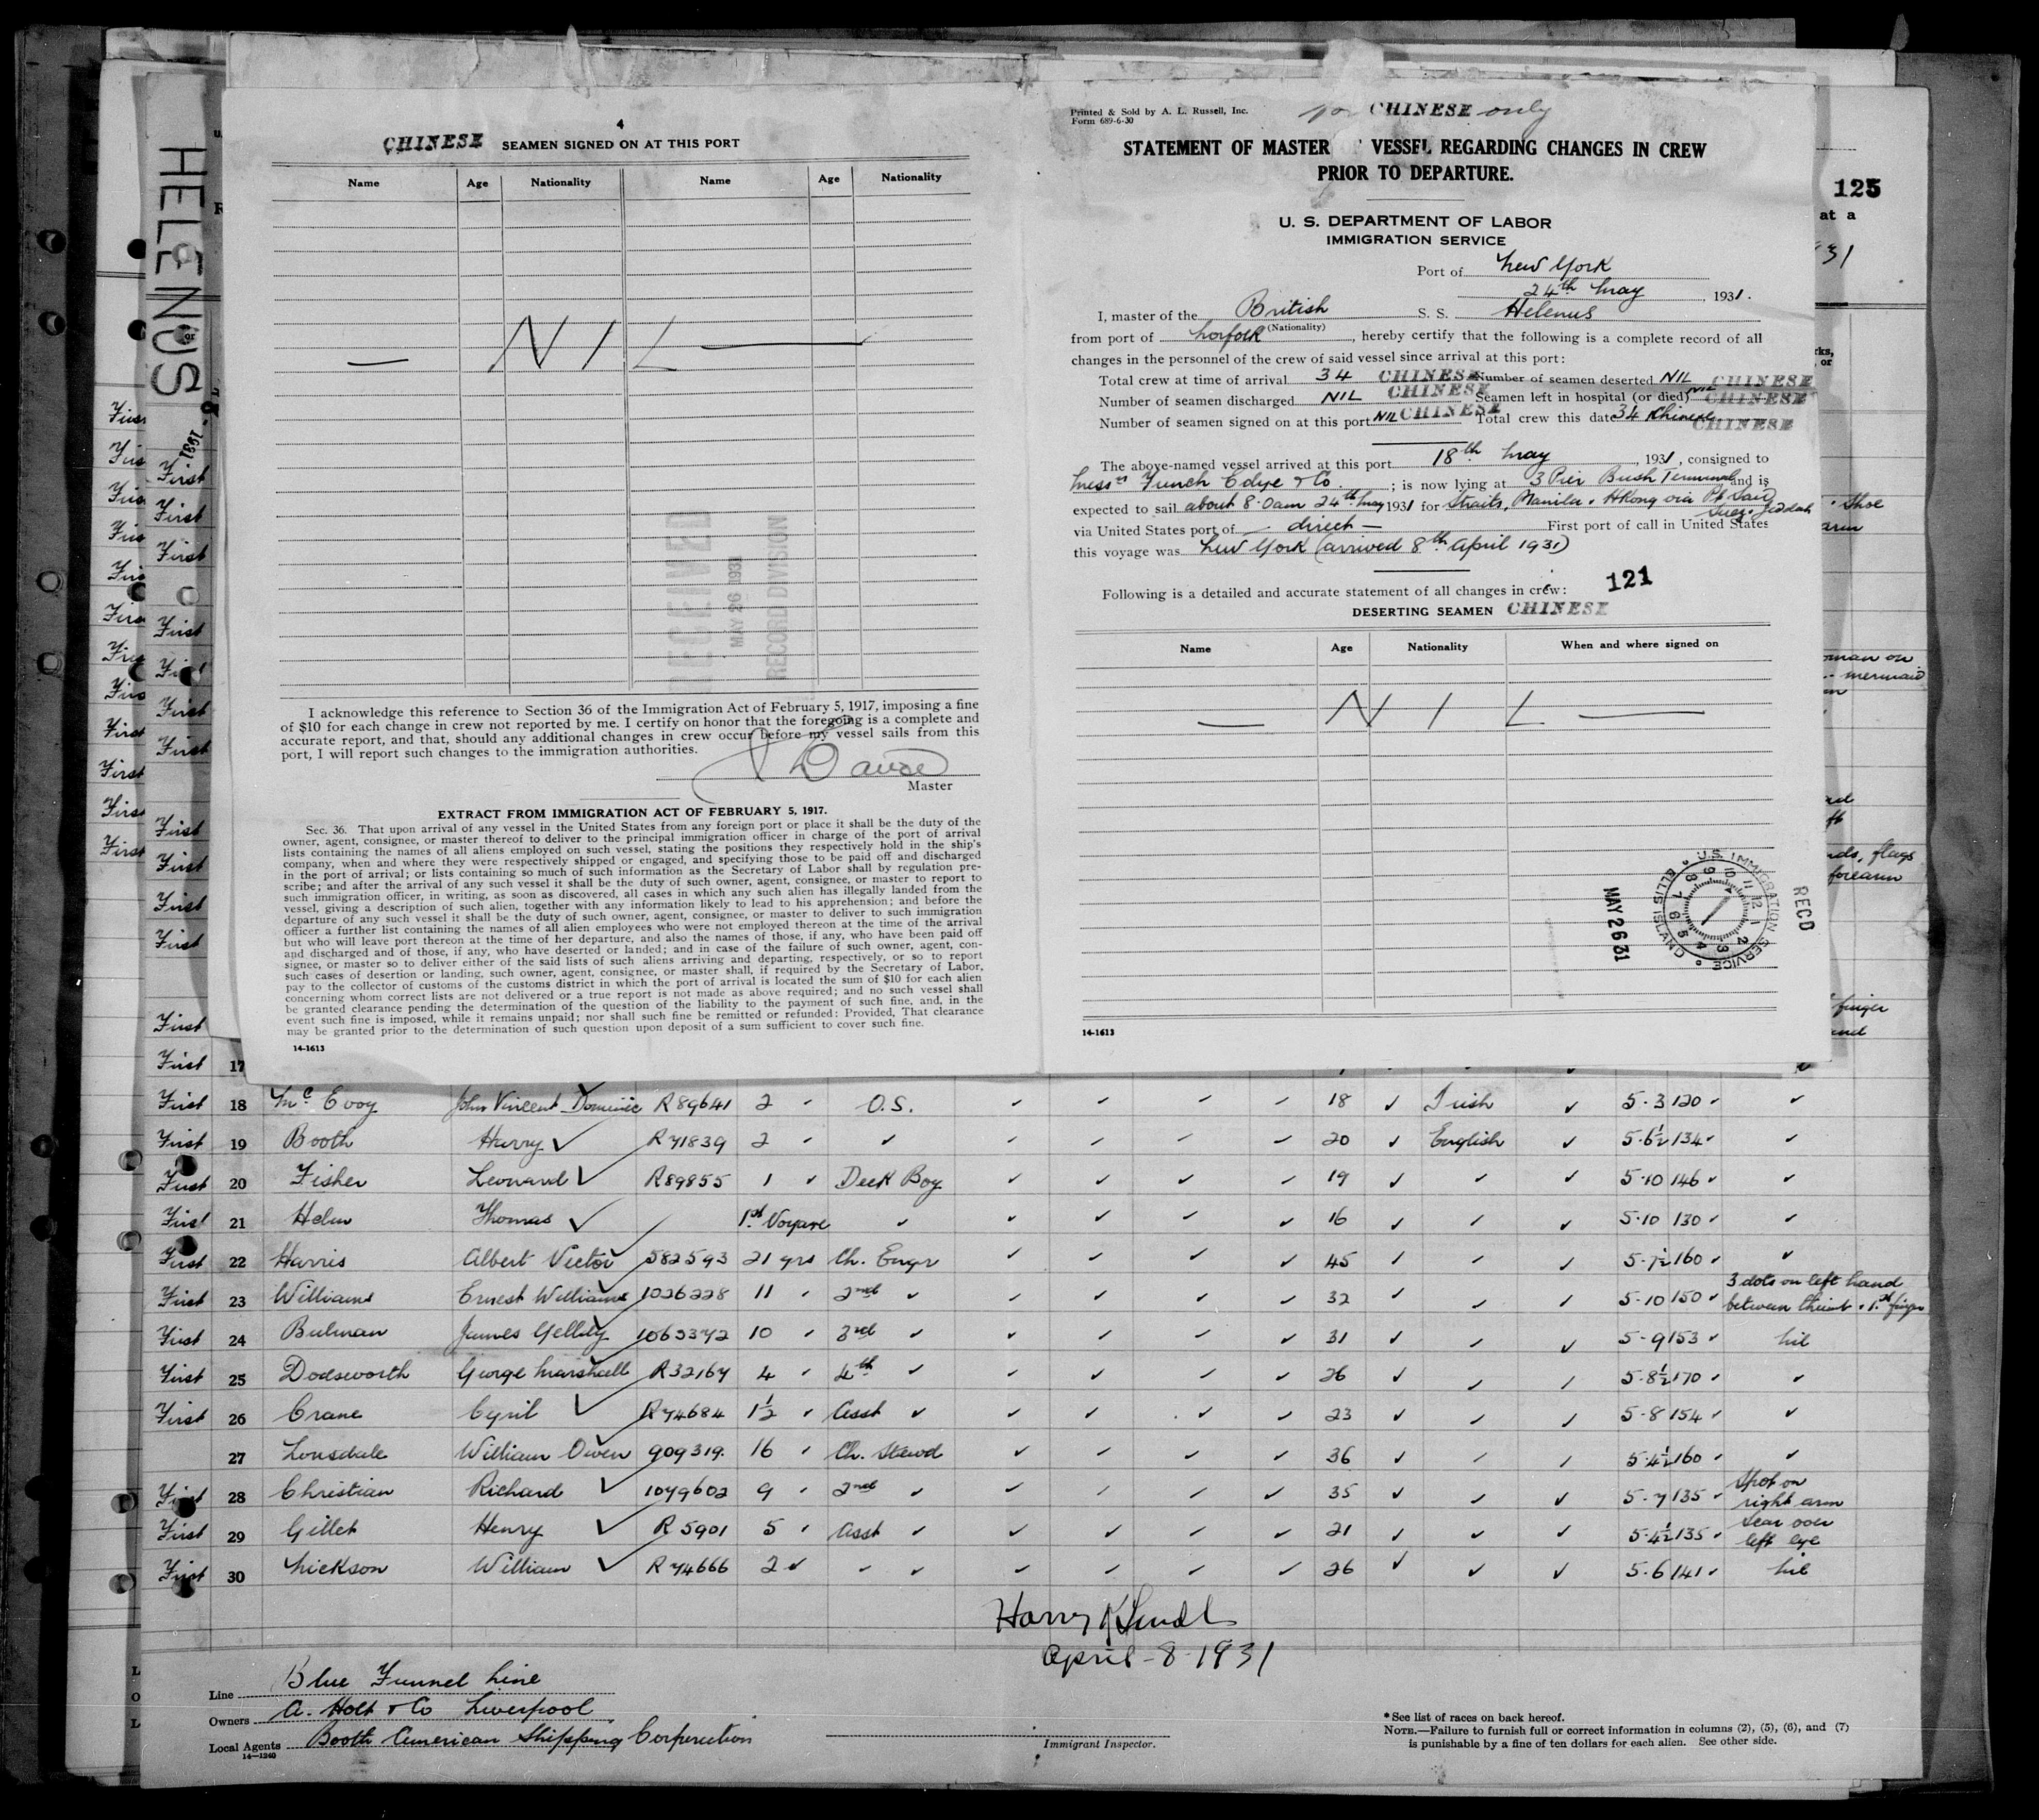 HELENUS
1931
4
CHINESE SEAMEN SIGNED ON AT THIS PORT
Name Age Nationality Name Age Nationality
— NIL —
RECEIVED
MAY 26 1931
RECORD DIVISION
I acknowledge this reference to Section 36 of the Immigration Act of February 5, 1917, imposing a fine
of $10 for each change in crew not reported by me. I certify on honor that the foregoing is a complete and
accurate report, and that, should any additional changes in crew occur before my vessel sails from this
port, I will report such changes to the immigration authorities.
Master
EXTRACT FROM IMMIGRATION ACT OF FEBRUARY 5, 1917.
Sec. 36. That upon arrival of any vessel in the United States from any foreign port or place it shall be the duty of the
owner, agent, consignee, or master thereof to deliver to the principal immigration officer in charge of the port of arrival
lists containing the names of all aliens employed on such vessel, stating the positions they respectively hold in the ship's
company, when and where they were respectively shipped or engaged, and specifying those to be paid off and discharged
in the port of arrival; or lists containing so much of such information as the Secretary of Labor shall by regulation pre-
scribe; and after the arrival of any such vessel it shall be the duty of such owner, agent, consignee, or master to report to
such immigration officer, in writing, as soon as discovered, all cases in which any such alien has illegally landed from the
vessel, giving a description of such alien, together with any information likely to lead to his apprehension; and before the
departure of any such vessel it shall be the duty of such owner, agent, consignee, or master to deliver to such immigration
officer a further list containing the names of all alien employees who were not employed thereon at the time of the arrival
but who will leave port thereon at the time of her departure, and also the names of those, if any, who have been paid off
and discharged and of those, if any, who have deserted or landed; and in case of the failure of such owner, agent, con-
signee, or master so to deliver either of the said lists of such aliens arriving and departing, respectively, or so to report
such cases of desertion or landing, such owner, agent, consignee, or master, shall, if required by the Secretary of Labor,
pay to the collector of customs of the customs district in which the port of arrival is located the sum of $10 for each alien
concerning whom correct lists are not delivered or a true report is not made as above required; and no such vessel shall
be granted clearance pending the determination of the question of the liability to the payment of such fine, and, in the
event such fine is imposed, while it remains unpaid; nor shall such fine be remitted or refunded: Provided, That clearance
may be granted prior to the determination of such question upon deposit of a sum sufficient to cover such fine.
14-1613
Printed & Sold by A. L. Russell, Inc.
Form 689-6-30
for CHINESE only
STATEMENT OF MASTER OF VESSEL REGARDING CHANGES IN CREW
PRIOR TO DEPARTURE.
U. S. DEPARTMENT OF LABOR
IMMIGRATION SERVICE
Port of New York
24th May, 1931.
I, master of the British S. S. Helenus
(Nationality)
from port of Norfolk, hereby certify that the following is a complete record of all
changes in the personnel of the crew of said vessel since arrival at this port:
Total crew at time of arrival 34 CHINESE Number of seamen deserted NIL CHINESE
Number of seamen discharged NIL CHINESE Seamen left in hospital (or died) NIL CHINESE
Number of seamen signed on at this port NIL CHINESE Total crew this date 34 Chinese CHINESE
The above-named vessel arrived at this port 18th May, 1931, consigned to
Messrs Funch Edye & Co.; is now lying at 3 Pier Bush Terminal and is
expected to sail about 8.0am 24th May 1931 for Straits, Manila, HKong via Pt Said
Suez, Jeddah
via United States port of — direct — First port of call in United States
this voyage was New York (arrived 8th April 1931)
121
Following is a detailed and accurate statement of all changes in crew:
DESERTING SEAMEN CHINESE
Name Age Nationality When and where signed on
— NIL —
U.S. IMMIGRATION SERVICE ELLIS ISLAND
REC'D
MAY 26 31
14-1613
125
at a
31
Shoe
arm
woman on
mermaid
flags
forearm
finger
17
First 18 McEvoy John Vincent Dominic R89641 2 O.S. 18 Irish 5-3 120
First 19 Booth Harry R71839 2 20 English 5-6½ 134
First 20 Fisher Leonard R89855 1 Deck Boy 19 5-10 146
First 21 Helm Thomas 1st Voyage 16 5-10 130
First 22 Harris Albert Victor 582593 21 yrs Ch. Engr 45 5-7½ 160
First 23 Williams Ernest William 1026228 11 2nd 32 5-10 150 3 dots on left hand
between thumb & 1st finger
First 24 Bulman James 1063372 10 3rd 31 5-9 153 Nil
First 25 Dodsworth George Marshall R32167 4 4th 26 5-8½ 170
First 26 Crane Cyril R74684 1½ Asst 23 5-8 154
27 Lonsdale William Owen 909319 16 Ch. Stewd 36 5-4½ 160
First 28 Christian Richard 1079602 9 2nd 35 5-7 135 Spot on
right arm
First 29 Gillet Henry R5901 5 Asst 21 5-4½ 135 Scar over
left eye
First 30 Nickson William R74666 2 26 5-6 141 Nil
April-8-1931
Line Blue Funnel Line
Owners A. Holt & Co Liverpool
Local Agents Booth American Shipping Corporation
14-1240
Immigrant Inspector.
*See list of races on back hereof.
NOTE.—Failure to furnish full or correct information in columns (2), (5), (6), and (7)
is punishable by a fine of ten dollars for each alien. See other side.